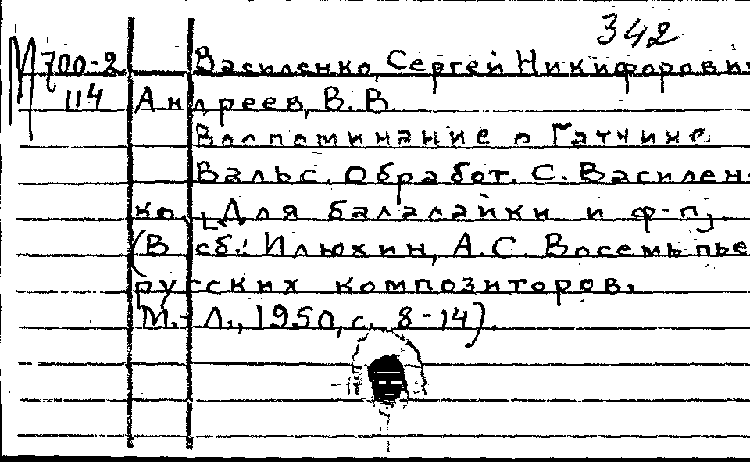 342
М 700-2 Василенко, Сергей Никифорович
114 Андреев, В. В.
Воспоминание о Гатчине.
Вальс. Обработ. С. Василен-
ко. [Для балалайки и ф-п]
(В сб.: Илюхин, А.С. Восемь пье
русских композиторов.
М.-Л., 1950, с. 8-14).